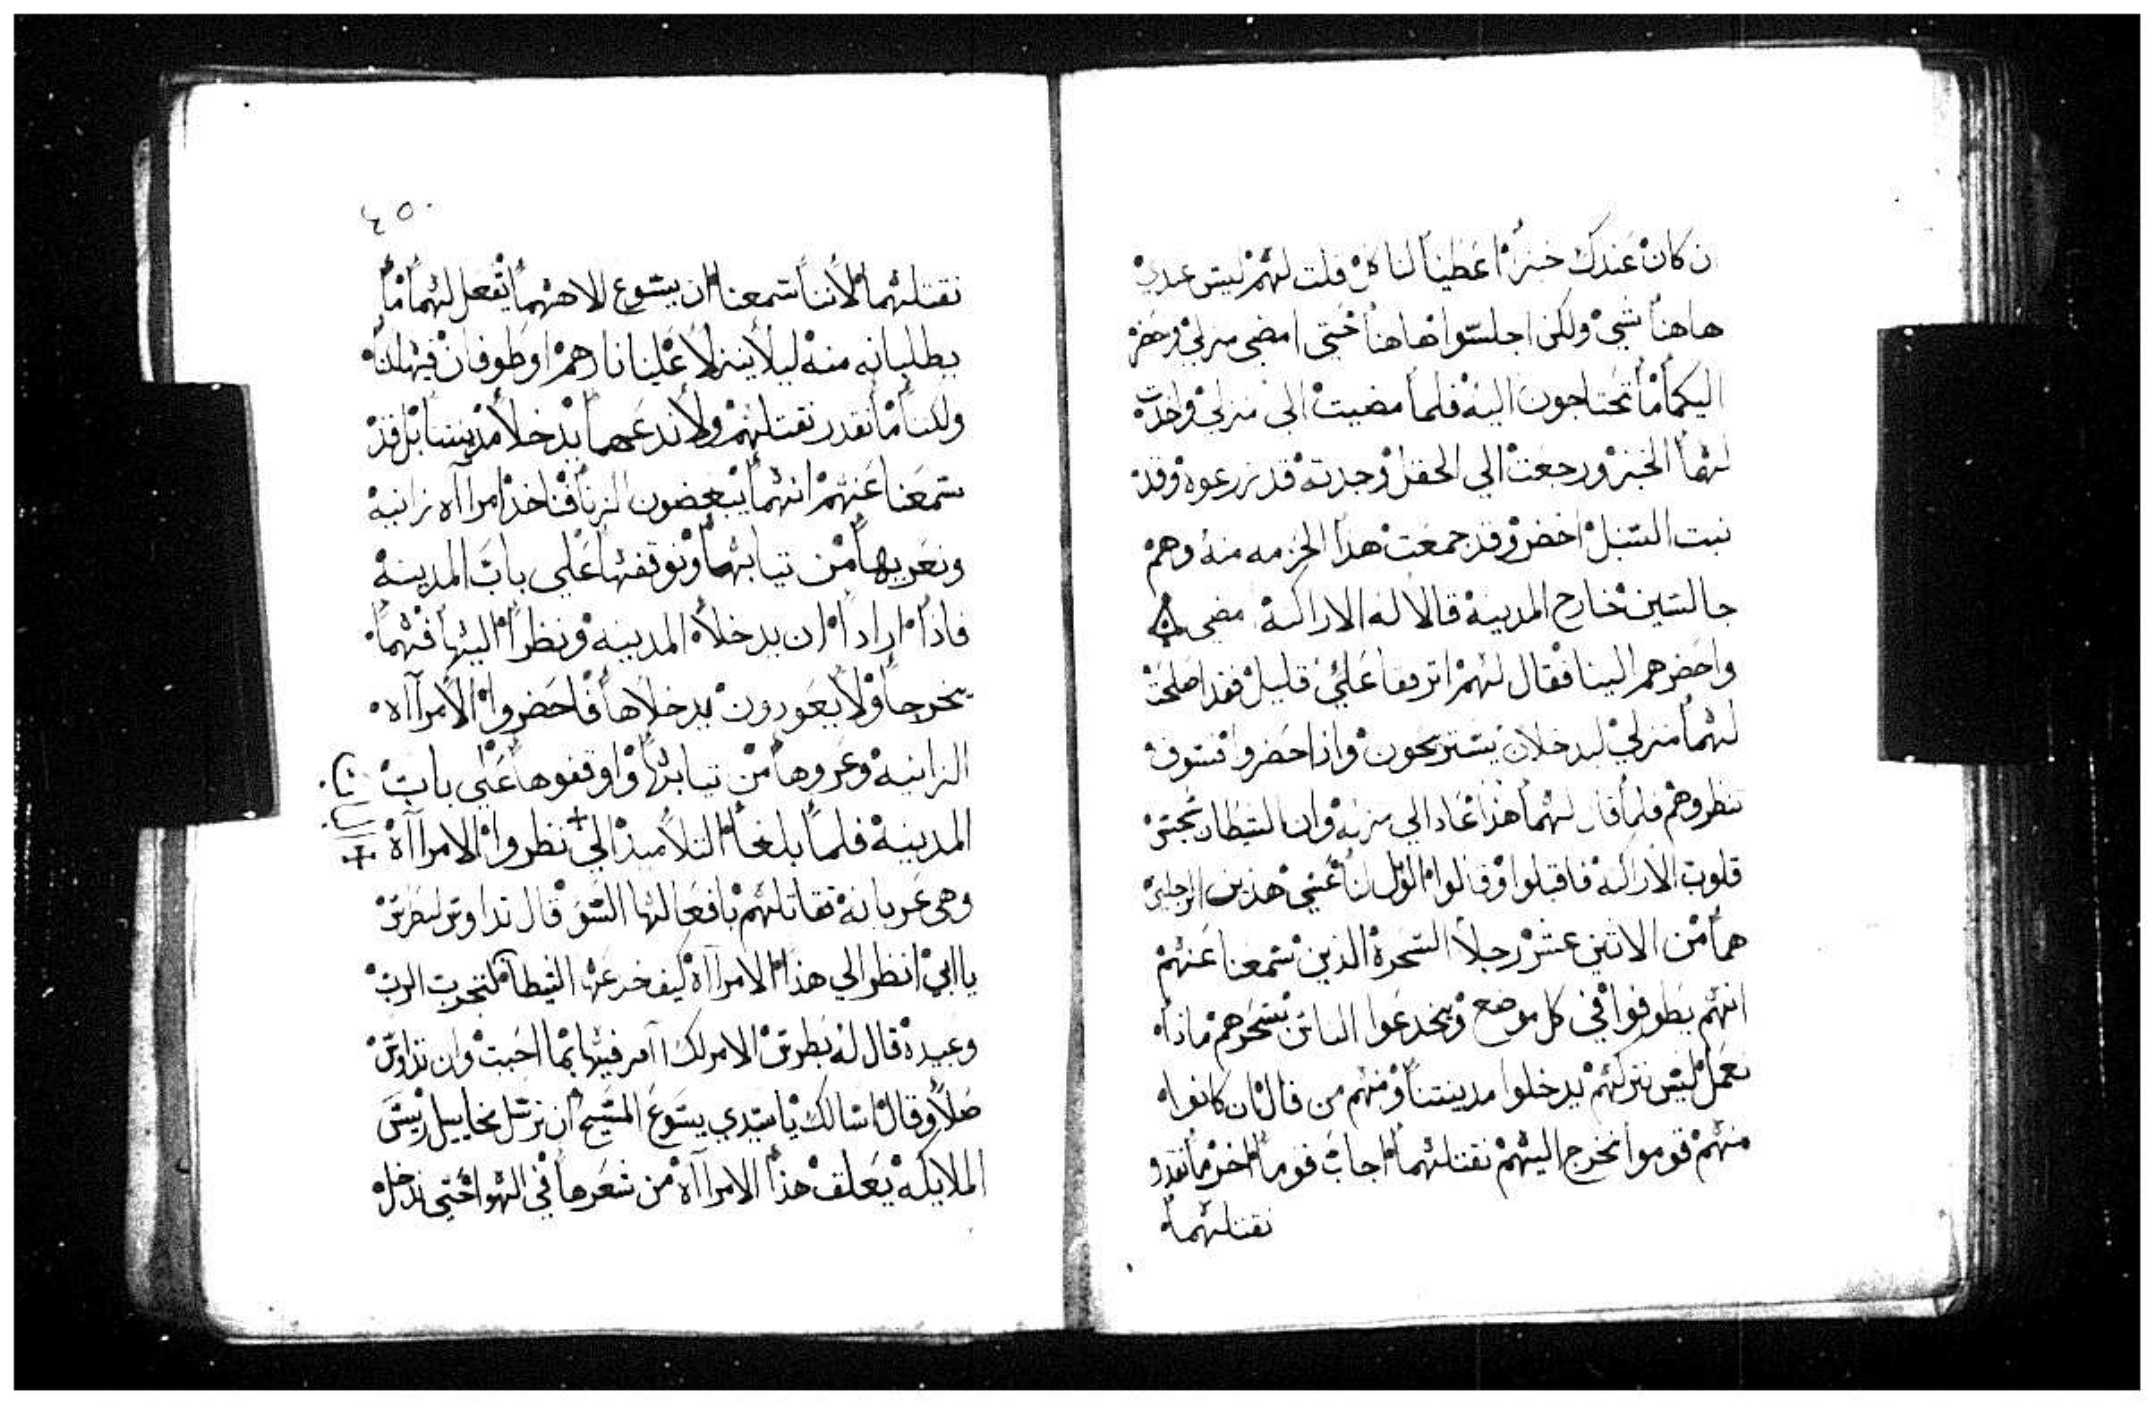 ن كان عندك خبز اعطينا لناكل قلت لهم ليس عندي
هاهنا شي ولكن اجلسوا هاهنا حتى امضي منزلي واحضر
اليكما ما تحتاجون اليه فلما مضيت الى منزلي واخدت
لهما الخبز ورجعت الي الحقل وجدته قد زرعوه وقد
نبت السنبل اخضر وقد جمعت هدا الحزمه منه وهم
جالسين خارج المدينة قالا له الاراكنة مضي
واحضرهم الينا فقال لهم اترفقا علي قليل فقد اصلحت
لهما منزلي ليدخلان يستريحون واذا حضروا فسوف
تنظروهم فلما قال لهما هذا عاد الي منزله وان الشيطان
قلوب الاراكنه فاقبلوا وقالوا الويل لنا عسي هذين الرجلين
هما من الاتنين عشر رجلا السحرة الذين سمعنا عنهم
انهم يطوفوا في كل موضع ويخدعوا الناس بسحرهم ماذا
نعمل ليس نتركهم يدخلوا مدينتنا ومنهم من قال ان كانوا
منهم قوموا نخرج اليهم نقتلهما اجاب قوما اخر ما نقدر
نقتلهما
٤٥
نقتلهما لاننا سمعنا ان يسوع الاههما يفعل لهما ما
يطلبانه منه ليلا ينزلا علينا نارهم اوطوفان فيهلكنا
ولكنا ما نقدر نقتلهم ولا ندعهما يدخلا مدينتنا بل قد
سمعنا عنهم انهما يبغضون الزنا فناخذ امرااه زانيه
ونعريها من تيابها ونوقفها على باب المدينة
فاذا ارادا ان يدخلا المدينه ونظرا اليها فهما
يخرجا ولا يعودون يدخلاها فاحضروا الامرااه
الزانيه وعروها من تيابها واوقفوها علي باب
المدينة فلما بلغا التلاميذ الي نظروا الامرااة
وهي عريانة تقاتلهم بافعالها السو قال تداوس لبطرس
يا ابي انظر الي هذا الامرااة كيف خدعها الشيطان لتجرب الرب
وعبيده قال له بطرس الامر لك اامر فيها بما احببت وان تداوس
صلا وقال اسالك يا سيدي يسوع المسيح ان ترسل مخاييل رييس
الملايكه يعلف هذا الامرااة من شعرها في الهوا حتى ندخل